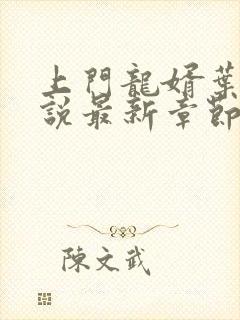 上門龍婿葉
說最新章節
陳文武